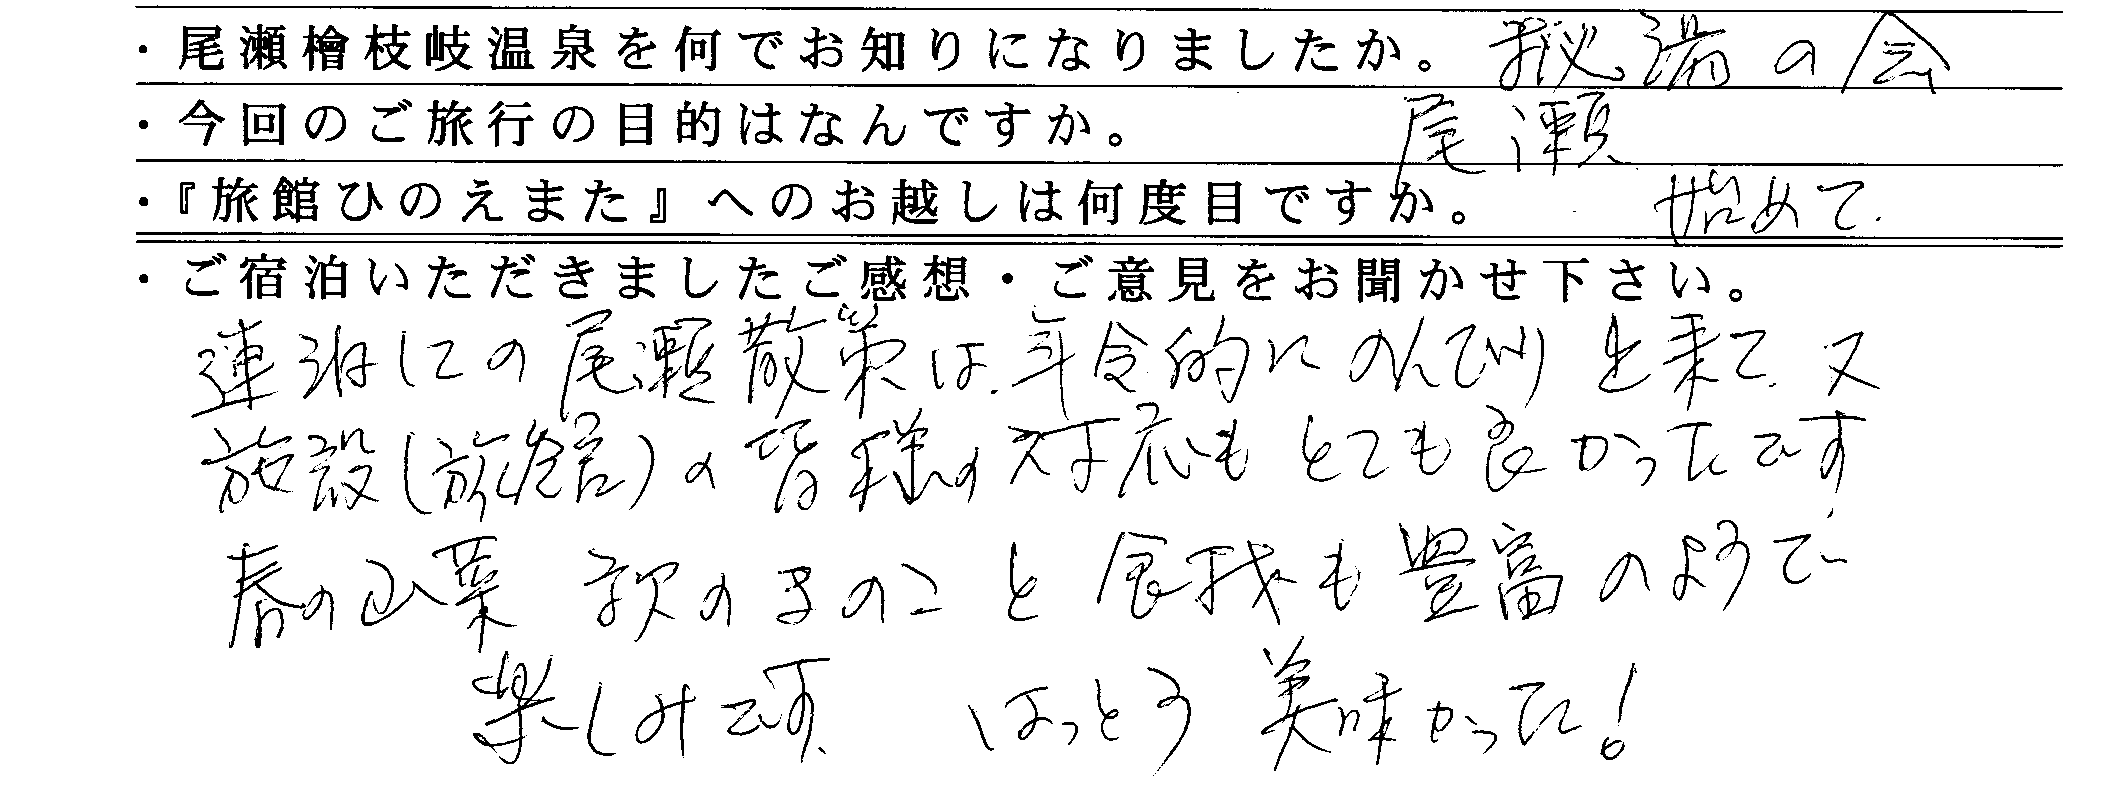 ・尾瀬檜枝岐温泉を何でお知りになりましたか。 秘湯の会
・今回のご旅行の目的はなんですか。 尾瀬
・『旅館ひのえまた』へのお越しは何度目ですか。 始めて.
・ご宿泊いただきましたご感想・ご意見をお聞かせ下さい。
連泊しての尾瀬散策は、年令的にのんびり出来て、又
施設(旅館)の皆様の対応もとても良かったです
春の山菜 秋のきのこと食材も豊富のようで
楽しみです、 はっとう美味かった!